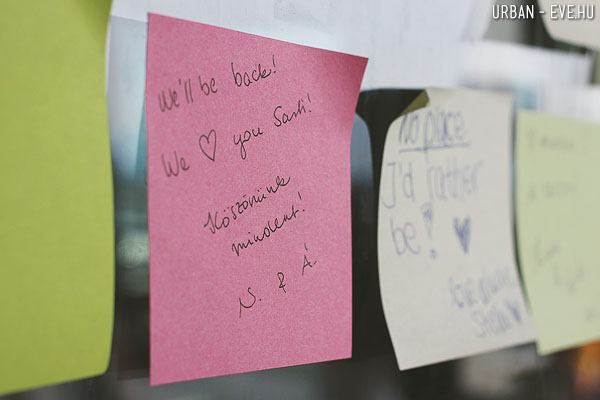 URBAN - EVE.HU
We'll be back!
We ♡ you Sasli!
Köszönünk
mindent!
N. & Á.
No place
I'd rather
be!
love